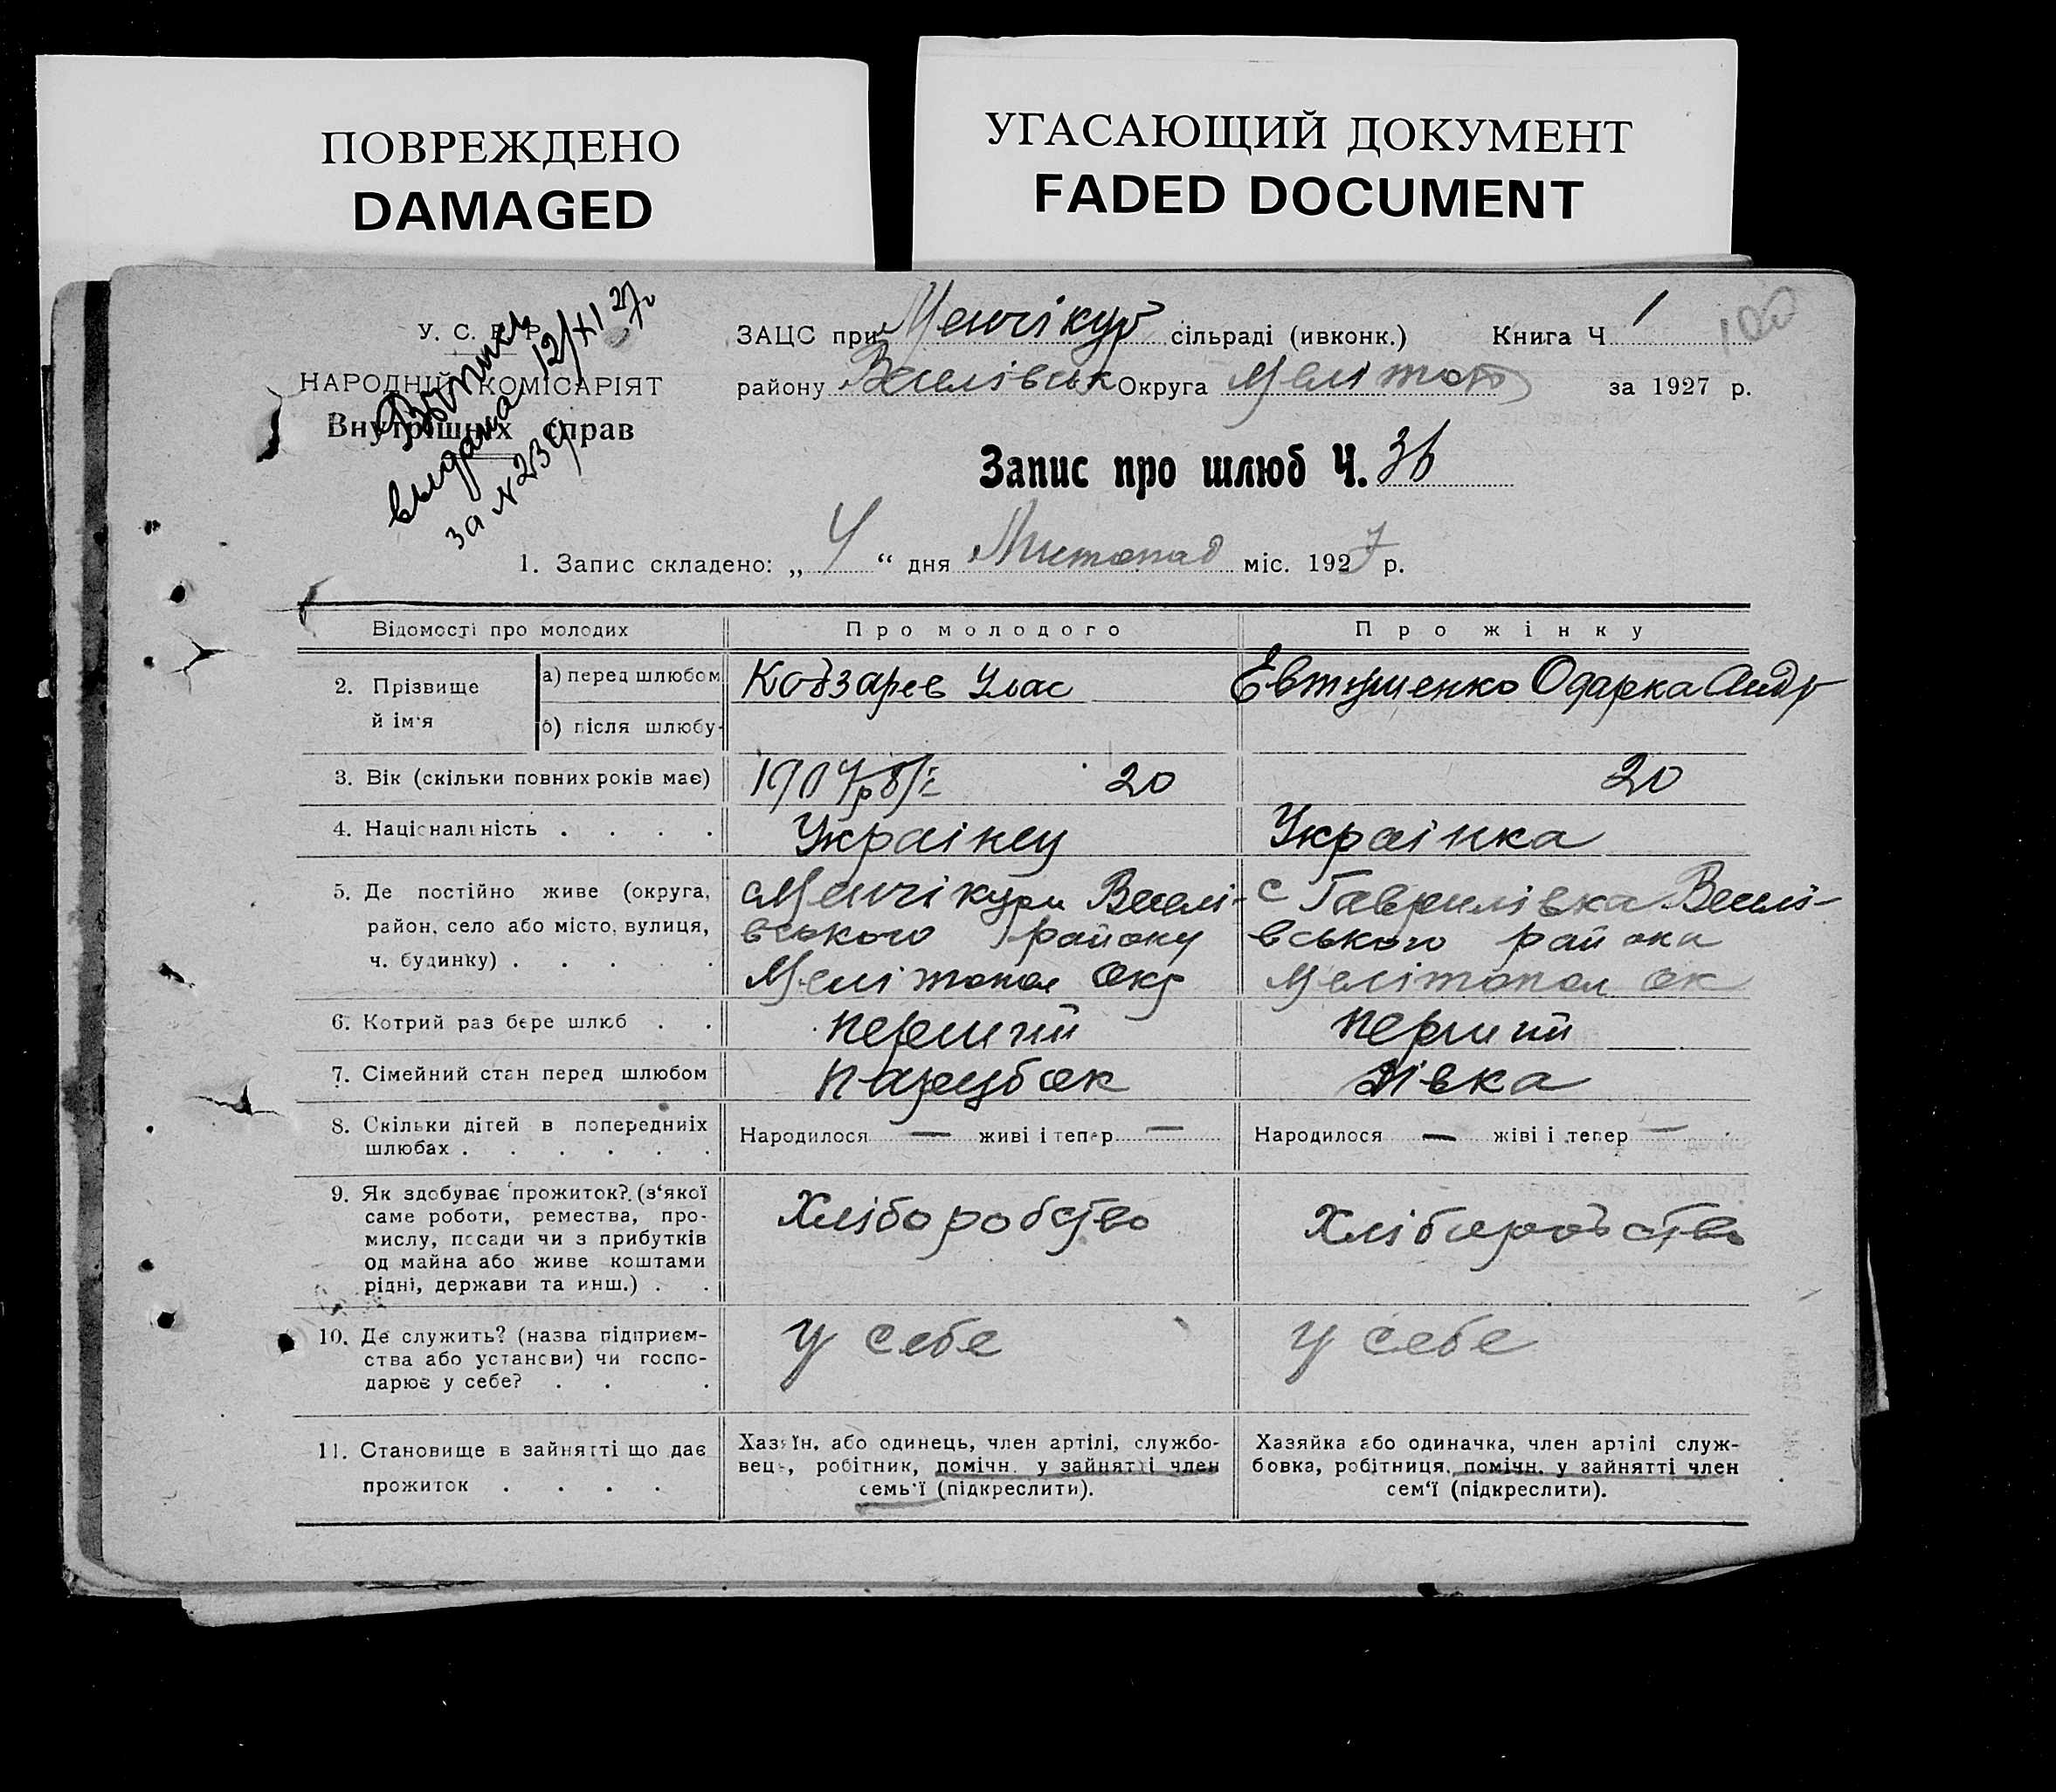 ПОВРЕЖДЕНО
DAMAGED
УГАСАЮЩИЙ ДОКУМЕНТ
FADED DOCUMENT
У. С. Р. Р.
НАРОДНІЙ КОМІСАРІЯТ
Внутрішніх справ
Выпись
выдана 12/XI 27г
за N 239
ЗАЦС при Менчікур сільраді (ивконк.) Книга Ч 1
100
району Веселівськ Округа Меліто за 1927 р.
Запис про шлюб Ч. 36
1. Запис складено: „ 4 “ дня Листопад міс. 1927 р.
Відомості про молодих Про молодого Про жінку
2. Прізвище й ім'я а) перед шлюбом Кобзарев Улас Евтушенко Одарка Андр
б) після шлюбу
3. Вік (скільки повних років має) 1907р 8/ 20 20
4. Національність . . . . Українец Українка
5. Де постійно живе (округа, с Менчікури Веселі- с Гаврилівка Веселі-
район, село або місто, вулиця, вського району вського района
ч. будинку) . . . . . Мелітопол Окр Мелітопол ок
6. Котрий раз бере шлюб . . перший перший
7. Сімейний стан перед шлюбом парубок дівка
8. Скільки дітей в попередніх Народилося — живі і тепер — Народилося — жіві і тепер —
шлюбах . . . . . .
9. Як здобуває прожиток? (з'якої Хліборобство Хліборобство
саме роботи, ремества, про-
мислу, посади чи з прибутків
од майна або живе коштами
рідні, держави та инш.) . .
10. Де служить? (назва підприєм- у себе у себе
ства або установи) чи госпо-
дарює у себе? . . .
11. Становище в зайнятті що дає Хазяїн, або одинець, член артілі, службо- Хазяйка або одиначка, член артілі служ-
прожиток . . . . вець, робітник, помічн. у зайнятті член бовка, робітниця, помічн. у зайнятті член
семь'ї (підкреслити). сем'ї (підкреслити).